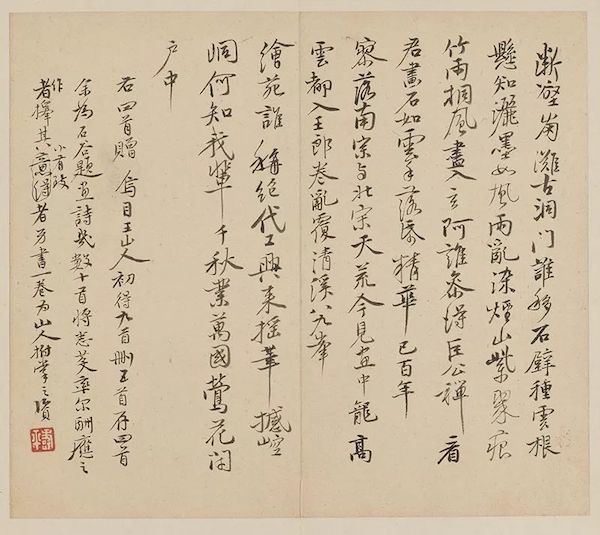 斷壑崩灘古洞門誰移石壁種雲根
懸知灑墨如風雨亂染煙山紫翠痕
竹雨桐風盡入玄阿誰參得巨公禪看
君畫石如雲手落紙精華已百年
寥落南宗与北宗天荒今見畫中龍高
雲都入王郎卷亂覆清溪八九峯
繪苑誰稱絕代工興來搖筆撼崆
峒何知我輩千秋業萬國鶯花閉
戶中
右四首贈烏目王山人初得九首刪五首存四首
余為石谷題畫詩幾數十首將忘其率尔酬應之
作小有改
者擇其意得者另書一卷为山人拊掌之資